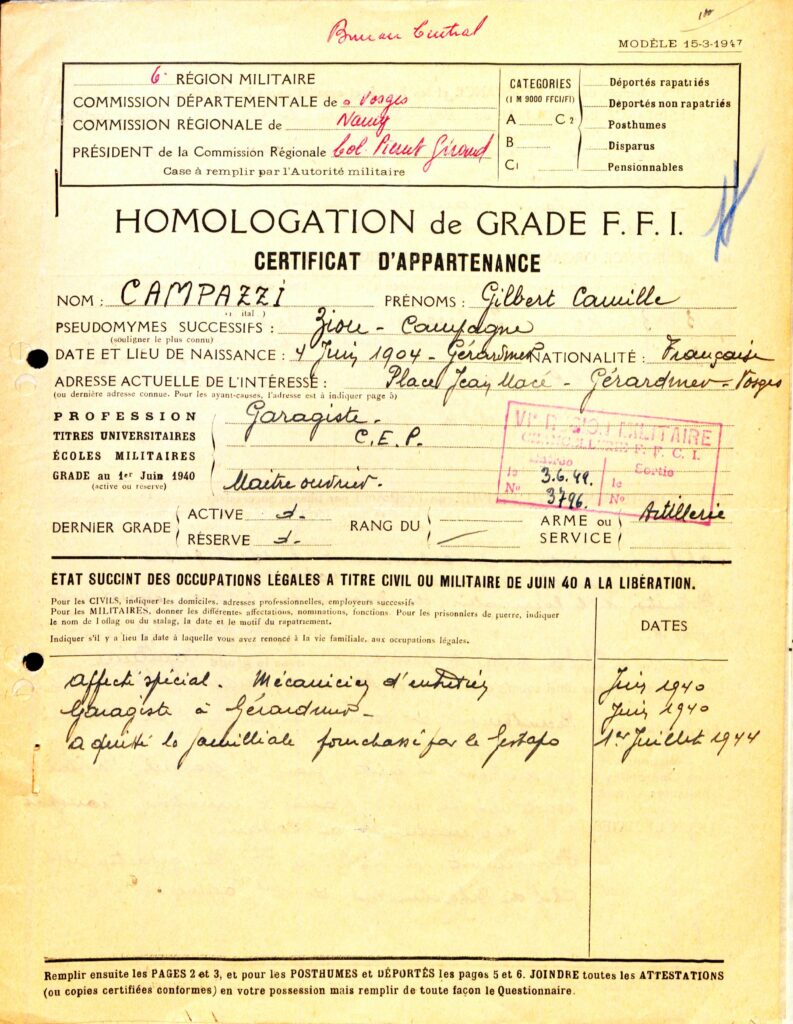 Bureau Central
MODÈLE 15-3-1947
6e RÉGION MILITAIRE
COMMISSION DÉPARTEMENTALE de s Vosges
COMMISSION RÉGIONALE de Nancy
PRÉSIDENT de la Commission Régionale Col. Girand
Case à remplir par l'Autorité militaire
CATEGORIES
(I M 9000 FFCI/FI)
A C2
B
C1
Déportés rapatriés
Déportés non rapatriés
Posthumes
Disparus
Pensionnables
HOMOLOGATION de GRADE F. F. I.
CERTIFICAT D'APPARTENANCE
NOM : CAMPAZZI PRÉNOMS : Gilbert Camille
PSEUDOMYMES SUCCESSIFS : Ziou - Campagne
(souligner le plus connu)
DATE ET LIEU DE NAISSANCE : 4 Juin 1904 - Gérardmer NATIONALITÉ : Française
ADRESSE ACTUELLE DE L'INTÉRESSÉ : Place Jean Macé - Gérardmer - Vosges
(ou dernière adresse connue. Pour les ayant-causes, l'adresse est à indiquer page 5)
PROFESSION Garagiste.
TITRES UNIVERSITAIRES C.E.P.
ÉCOLES MILITAIRES
GRADE au 1er Juin 1940 Maitre ouvrier.
(active ou réserve)
VIe RÉGION MILITAIRE
F. F. C. I.
Sortie
le 3.6.49. le
No 3796. No
DERNIER GRADE ACTIVE RANG DU ARME ou SERVICE Artillerie
RÉSERVE
ÉTAT SUCCINT DES OCCUPATIONS LÉGALES A TITRE CIVIL OU MILITAIRE DE JUIN 40 A LA LIBÉRATION.
Pour les CIVILS, indiquer les domiciles, adresses professionnelles, employeurs successifs
Pour les MILITAIRES, donner les différentes affectations, nominations, fonctions. Pour les prisonniers de guerre, indiquer
le nom de l oflag ou du stalag, la date et le motif du rapatriement.
Indiquer s'il y a lieu la date à laquelle vous avez renoncé à la vie familiale, aux occupations légales.
DATES
Affecté spécial. Mécanicien d'entretien Juin 1940
Garagiste à Gérardmer - Juin 1940
a quitté le familliale pourchassé par le Gestapo 1er Juillet 1944
Remplir ensuite les PAGES 2 et 3, et pour les POSTHUMES et DÉPORTÉS les pages 5 et 6. JOINDRE toutes les ATTESTATIONS
(ou copies certifiées conformes) en votre possession mais remplir de toute façon le Questionnaire.